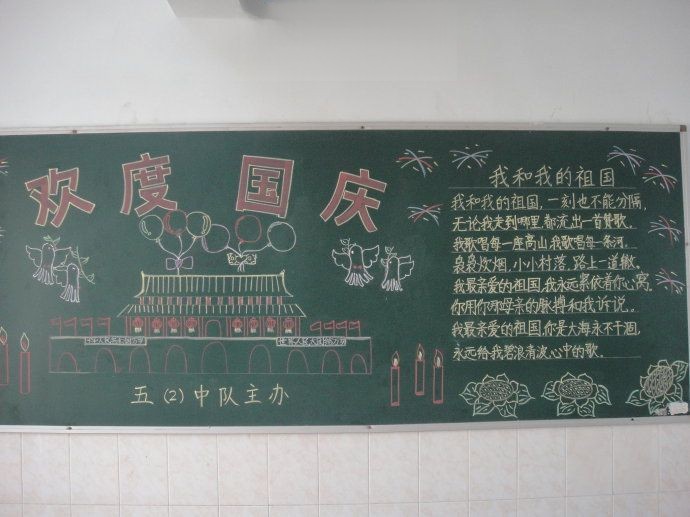 欢度国庆
中华人民共和国万岁
世界人民大团结万岁
五(2)中队主办
我和我的祖国
我和我的祖国,一刻也不能分隔,
无论我走到哪里,都流出一首赞歌。
我歌唱每一座高山,我歌唱每一条河。
袅袅炊烟,小小村落,路上一道辙。
我最亲爱的祖国,我永远紧依着你心窝。
你用你那母亲的脉搏和我诉说。
我最亲爱的祖国,你是大海永不干涸。
永远给我碧浪清波心中的歌。